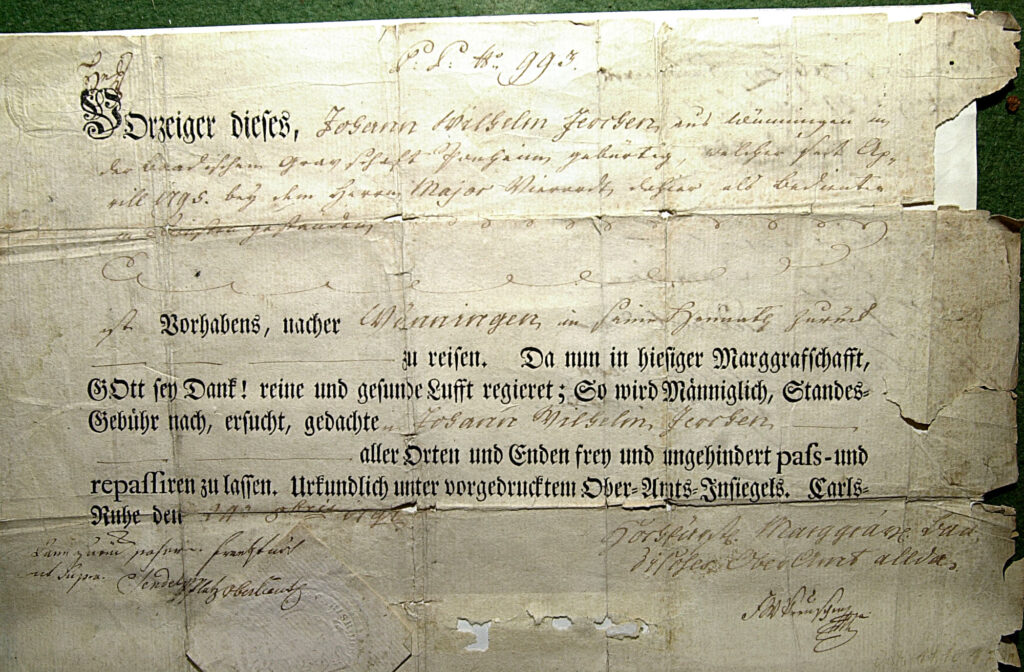 P: P: No. 993.
VOrzeiger dieses, Johann Wilhelm Jeorben, aus Winningen in
der Baadischen Gravschaft gebürtig, welcher seit Ap,
rill 1795. bey dem Herrn Major Vierordt dahier als Bedienter
in Diensten gestanden,
ist Vorhabens, nacher Winningen in seine Heimath zurück
zu reisen. Da nun in hiesiger Marggrafschafft,
GOtt sey Dank! reine und gesunde Lufft regieret; So wird Männiglich, Standes-
Gebühr nach, ersucht, gedachten Johann Wilhelm Jeorben
aller Orten und Enden frey und ungehindert pass- und
repassiren zu lassen. Urkundlich unter vorgedrucktem Ober-Amts-Insiegels. Carls-
Ruhe den 24n
Hochfürstl. Marggrävl. Baa
disches OberAmt allda.
ut Supra.